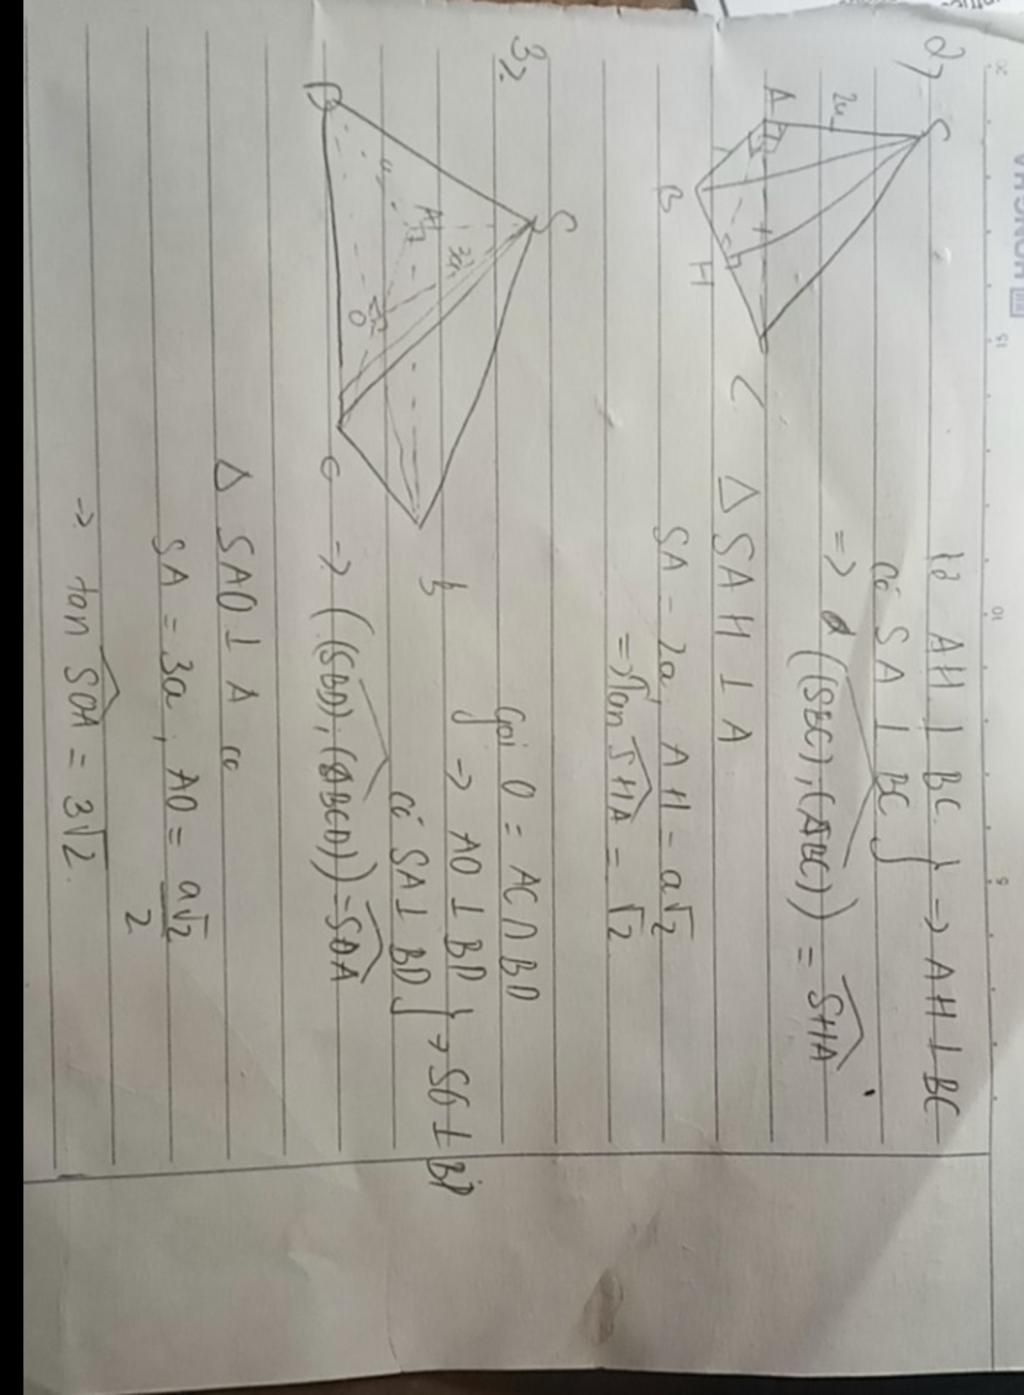 2,
S
2a
A
B
H
C
kẻ AH ⊥ BC } => AH ⊥ BC
có SA ⊥ BC
=> ((SBC),(ABC)) = SHA
Δ SAH ⊥ A
SA = 2a, AH = a√2
=> Tan SHA = √2
3,
S
A
3a
a
O
D
C
B
gọi O = AC ∩ BD
-> AO ⊥ BD } -> SO ⊥ BD
có SA ⊥ BD
=> ((SBD),(ABCD)) = SOA
Δ SAO ⊥ A có
SA = 3a, AO = a√2/2
-> tan SOA = 3√2.